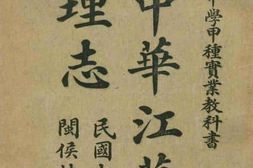 中學甲種實業教科書
中華江
理志
民國
閩侯